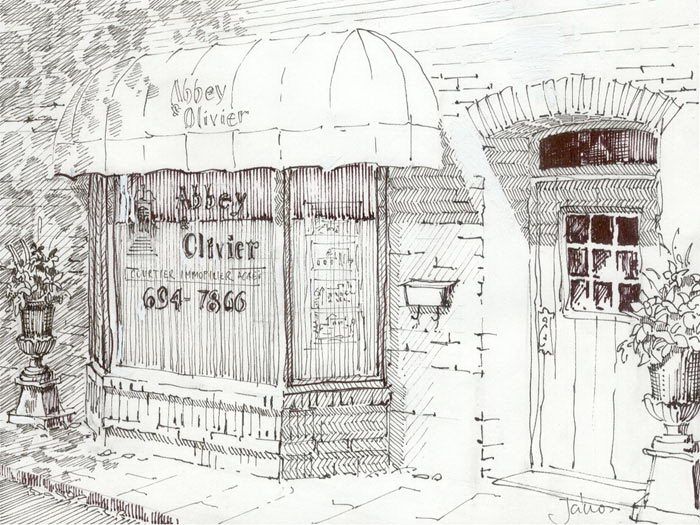 Abbey
& Olivier
Abbey
& Olivier
COURTIER IMMOBILIER AGRÉÉ
694-7866